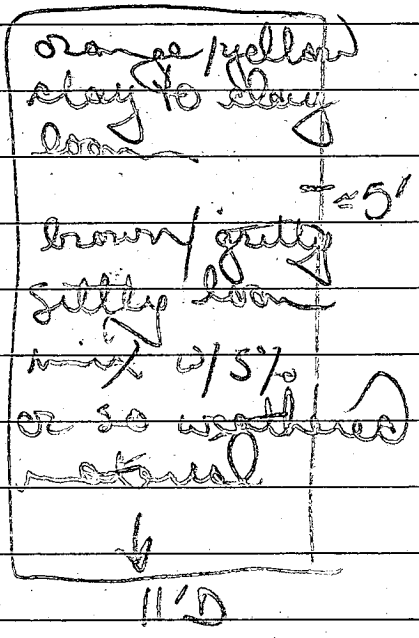 orange/yellow
clay to clay
loam
≈5'
brown/gritty
siltly loam
mix w/ 5%
or so weathered
material
↓
11'D